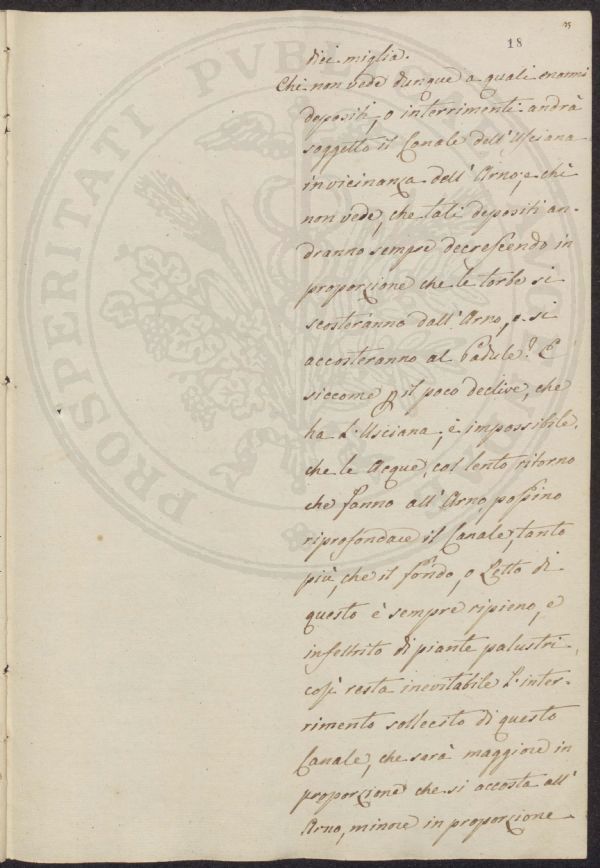 18
dieci miglia.
Chi non vede dunque a quali enormi
depositi, o interrimenti andrà
soggetto il Canale dell'Usciana
in vicinanza dell'Arno; e chi
non vede, che tali depositi an-
dranno sempre decrescendo in
proporzione che le torbe si
scosteranno dall'Arno, e si
accosteranno al Padule? E
siccome p il poco declive, che
ha l'Usciana, è impossibile,
che le Acque, col lento ritorno
che fanno all'Arno, possino
riprofondare il Canale, tanto
più, che il fondo, o Letto di
questo è sempre ripieno, e
infeltrito di piante palustri,
così resta inevitabile l'inter-
rimento sollecito di questo
Canale, che sarà maggiore in
proporzione che si accosta all'
Arno, minore in proporzione
PROSPERITATI PUBLICAE